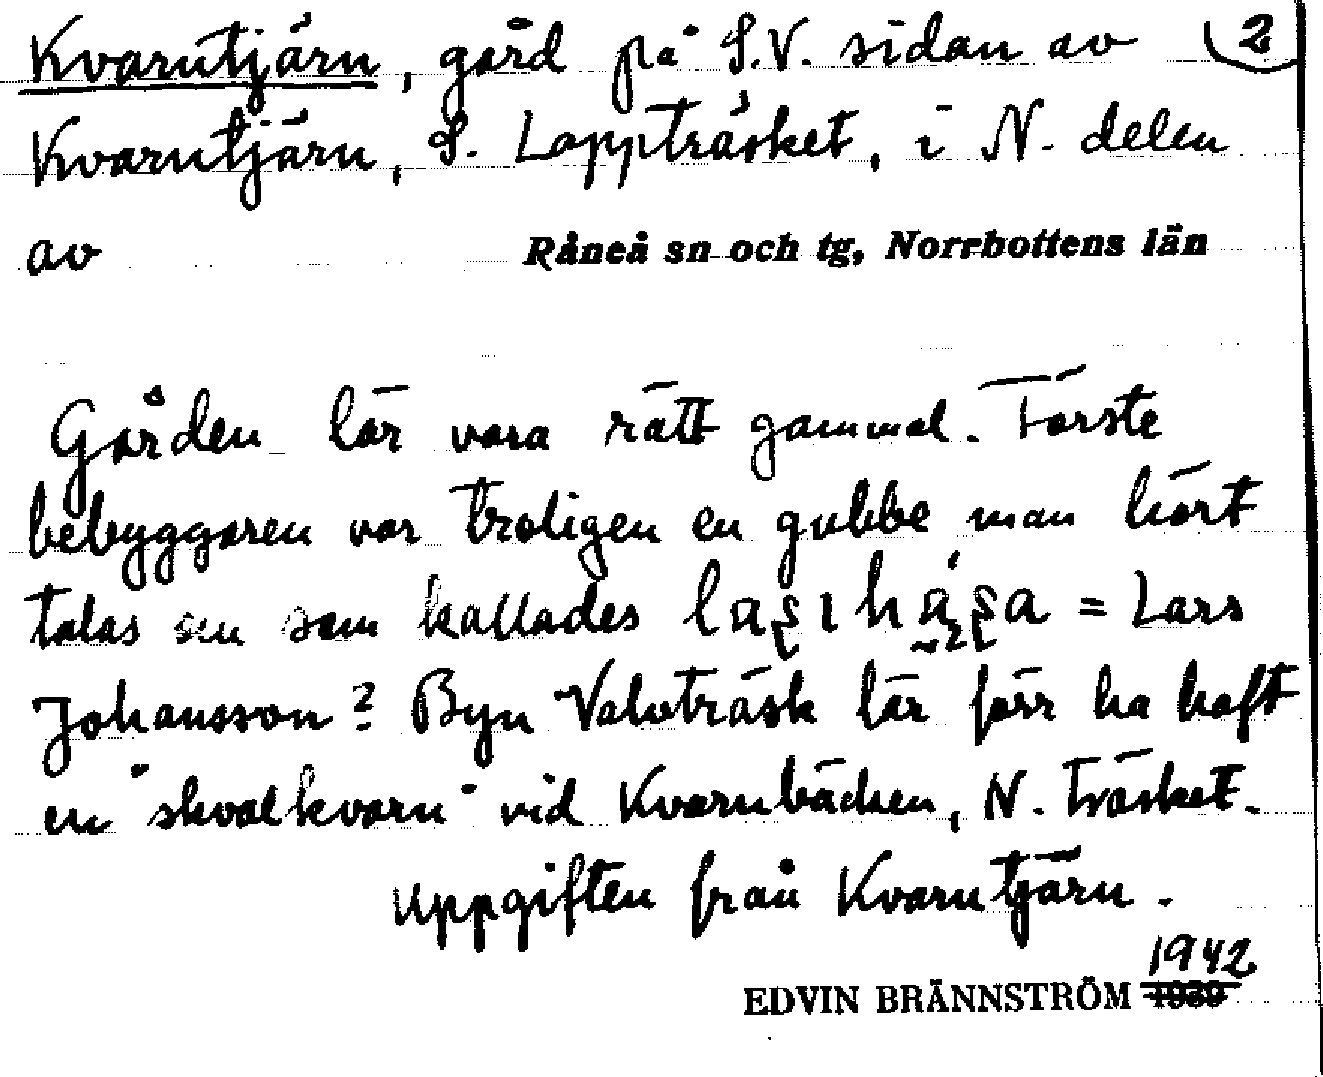 Kvarntjärn, gård på S.V. sidan av 2
Kvarntjärn, S. Lappträsket, i N. delen
av Råneå sn och tg, Norrbottens län
Gården lär vara rätt gammal. Förste
bebyggaren var troligen en gubbe man hört
talas om som kallades = Lars
Johansson? Byn Valvträsk lär förr ha haft
en "skvalkvarn" vid Kvarnbäcken, N. Träsket.
Uppgiften från Kvarntjärn.
1942
EDVIN BRÄNNSTRÖM 1939